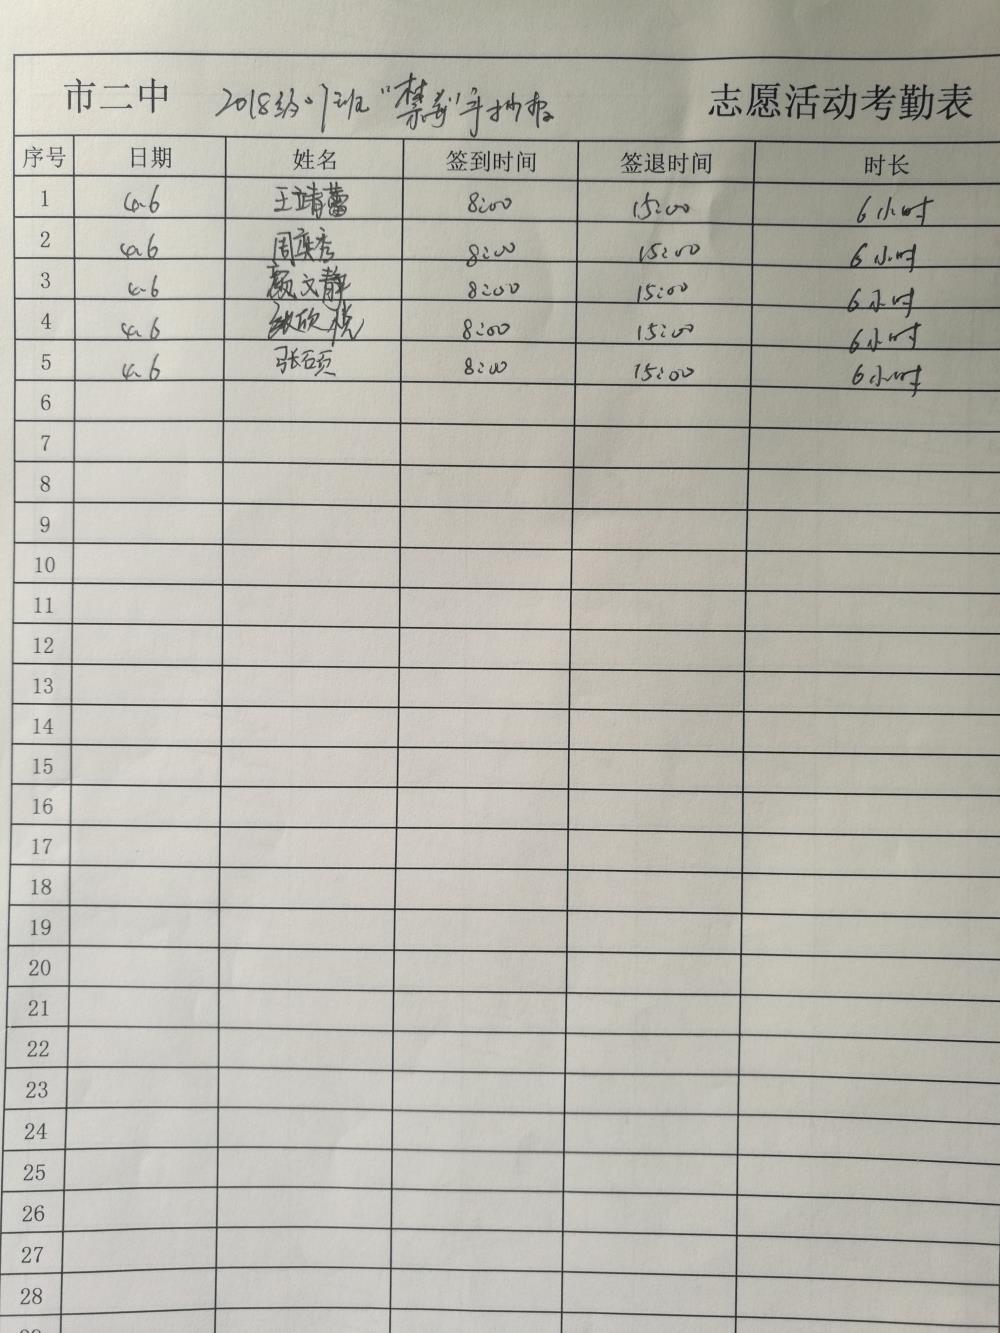 市二中 2018级·7班“禁毒”手抄报 志愿活动考勤表
序号 日期 姓名 签到时间 签退时间 时长
1 4.6 王靖蕾 8:00 15:00 6小时
2 4.6 周奕秀 8:00 15:00 6小时
3 4.6 颜文静 8:00 15:00 6小时
4 4.6 张欣悦 8:00 15:00 6小时
5 4.6 张硕 8:00 15:00 6小时
6
7
8
9
10
11
12
13
14
15
16
17
18
19
20
21
22
23
24
25
26
27
28